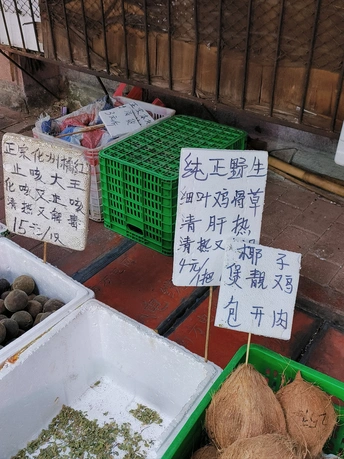 正宗化州橘红
止咳大王
化咳又止咳
清热又解毒
15元1只
纯正野生
细叶鸡得草
清肝热
清热又
4元/1把
椰子
煲靓鸡
包开肉